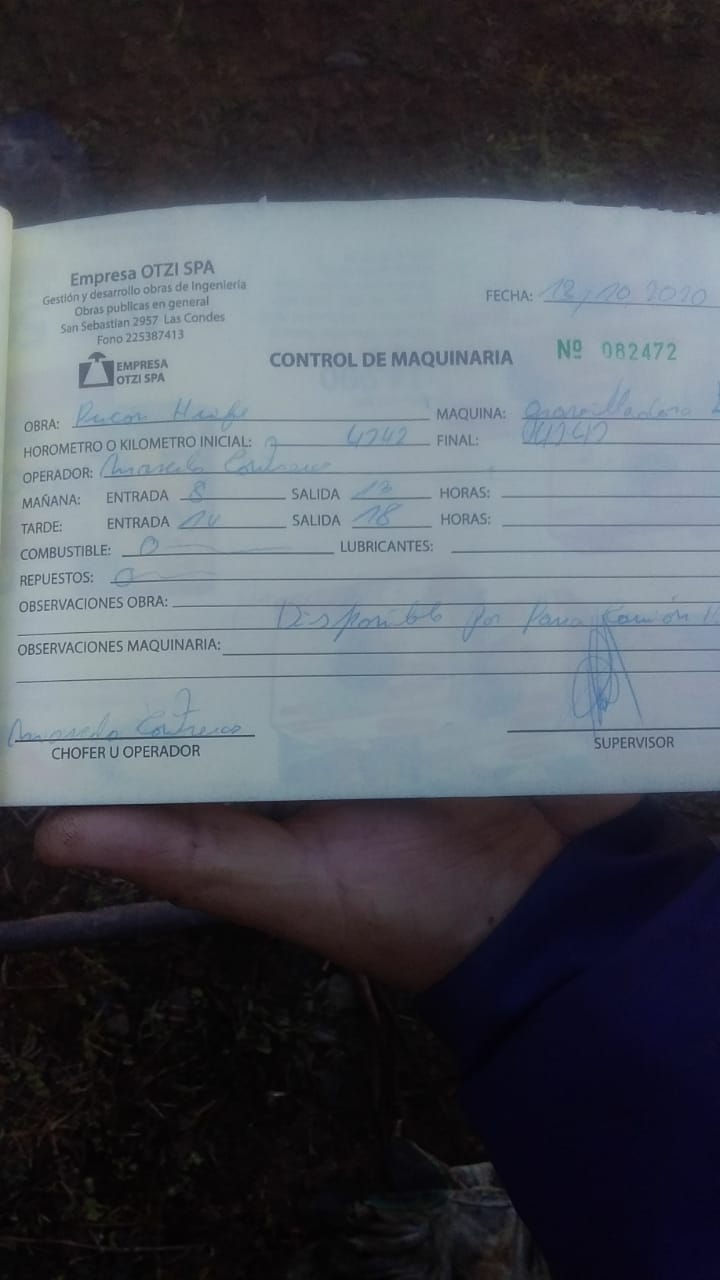 Empresa OTZI SPA
Gestión y desarrollo obras de Ingenieria
Obras publicas en general
San Sebastian 2957 Las Condes
Fono 225387413
EMPRESA
OTZI SPA
FECHA: 12/10/2020
CONTROL DE MAQUINARIA Nº 082472
OBRA: Pucon MAQUINA:
HOROMETRO O KILOMETRO INICIAL: 4242 FINAL: 4242
OPERADOR: Marcelo Contreras
MAÑANA: ENTRADA 8 SALIDA 13 HORAS:
TARDE: ENTRADA 14 SALIDA 18 HORAS:
COMBUSTIBLE: 0 LUBRICANTES:
REPUESTOS: 0
OBSERVACIONES OBRA:
Disponible por Pana Camión
OBSERVACIONES MAQUINARIA:
Marcelo Contreras
CHOFER U OPERADOR
SUPERVISOR